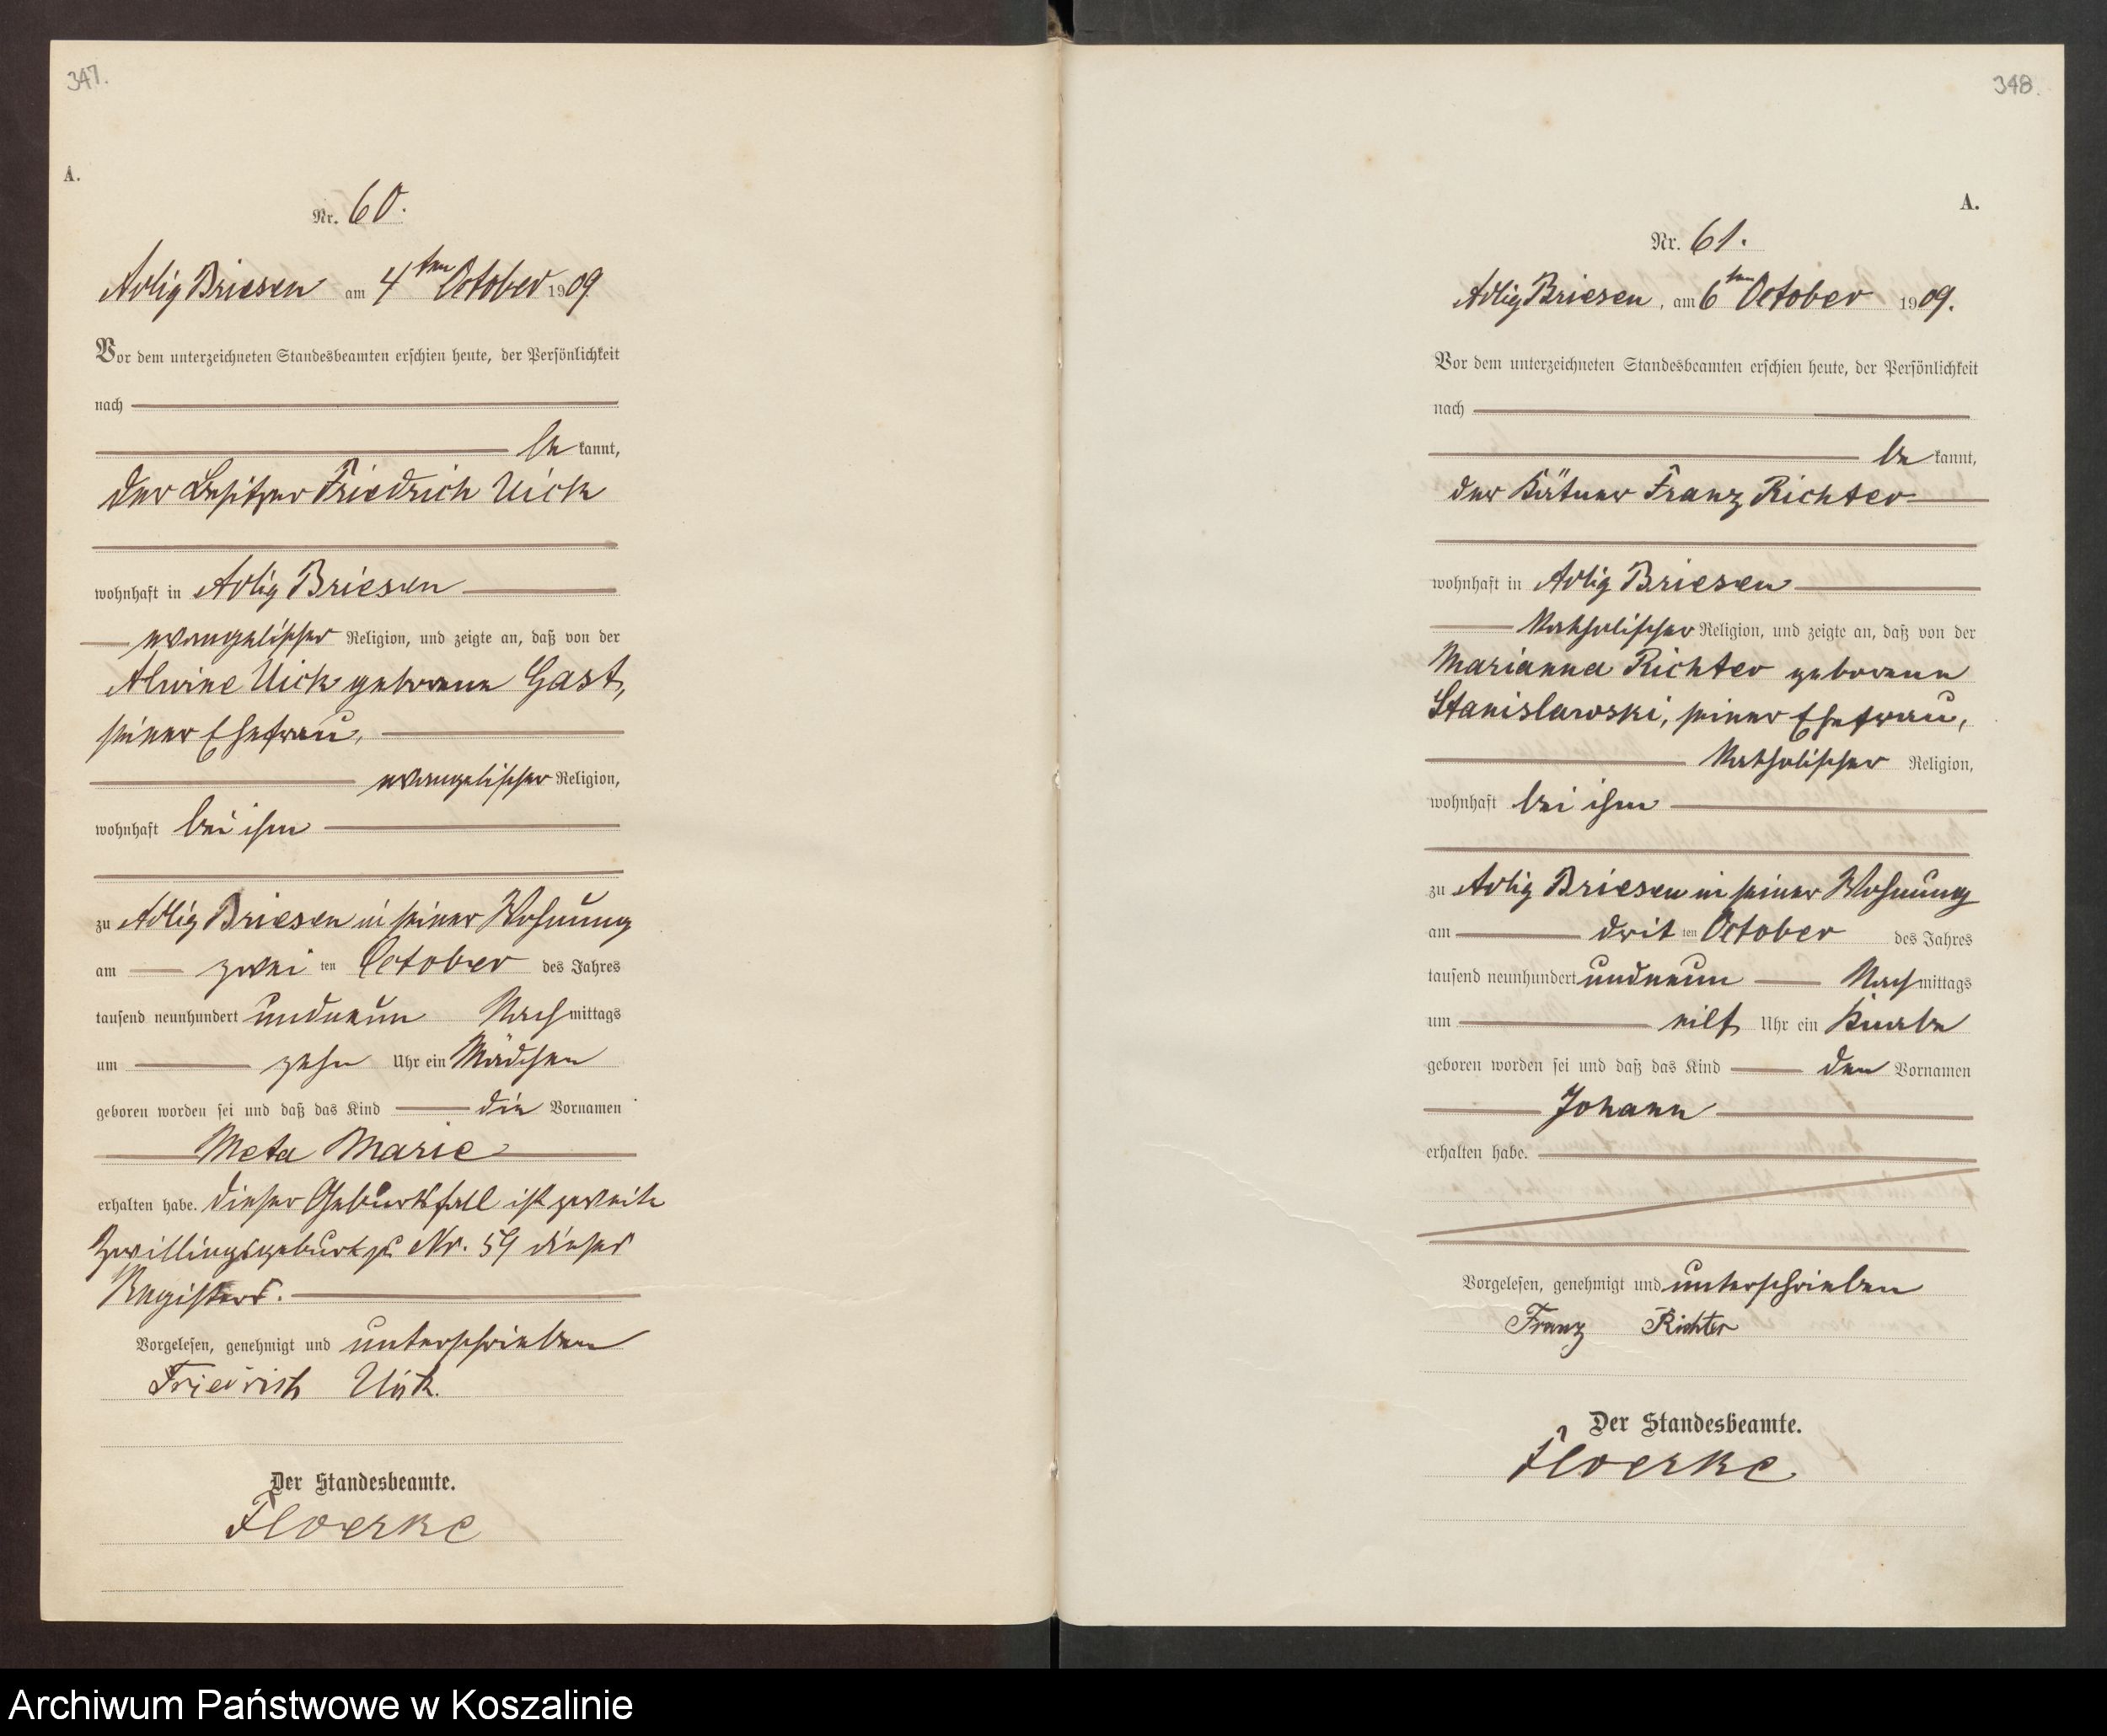 347.
A.
Nr. 60.
Adlig Briesen am 4ten October 1909.
Vor dem unterzeichneten Standesbeamten erschien heute, der Persönlichkeit
nach
be kannt,
der Besitzer Friedrich Uick
wohnhaft in Adlig Briesen
evangelischer Religion, und zeigte an, daß von der
Alwine Uick geborene Gast,
seiner Ehefrau,
evangelischer Religion,
wohnhaft bei ihm
zu Adlig Briesen in seiner Wohnung
am zwei ten October des Jahres
tausend neunhundert und neun Nachmittags
um zehn Uhr ein Mädchen
geboren worden sei und daß das Kind die Vornamen
Meta Marie
erhalten habe. Dieser Geburtsfall ist zweite
Zwillingsgeburt zu Nr. 59 dieses
Registers.
Vorgelesen, genehmigt und unterschrieben
Friedrich Uick.
Der Standesbeamte.
Floerke
348.
A.
Nr. 61.
Adlig Briesen, am 6ten October 1909.
Vor dem unterzeichneten Standesbeamten erschien heute, der Persönlichkeit
nach
be kannt,
der Kätner Franz Richter
wohnhaft in Adlig Briesen
katholischer Religion, und zeigte an, daß von der
Marianna Richter geborene
Stanislawski, seiner Ehefrau,
katholischer Religion,
wohnhaft bei ihm
zu Adlig Briesen in seiner Wohnung
am drit ten October des Jahres
tausend neunhundert und neun Nachmittags
um eilf Uhr ein Knabe
geboren worden sei und daß das Kind den Vornamen
Johann
erhalten habe.
Vorgelesen, genehmigt und unterschrieben
Franz Richter
Der Standesbeamte.
Floerke
Archiwum Państwowe w Koszalinie